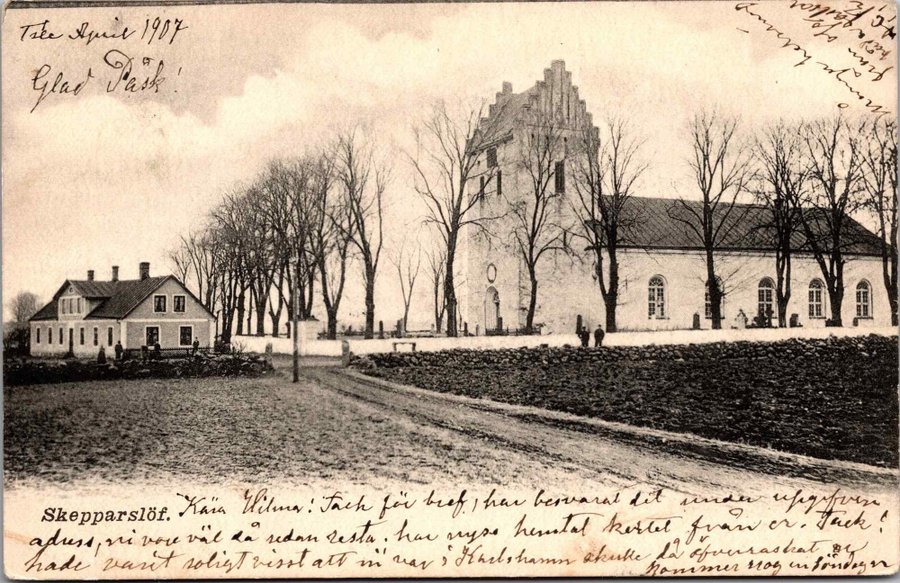 April 1907
Glad Påsk!
Skepparslöf.
Kära Wilma! Tack för bref, har besvarat dit under uppgifven
adress, ni vore väl då redan resta. har nyss hemtat kortet från er. Tack!
hade varit roligt visst att ni var i Karlshamn skulle då öfverraskat er
kommer nog en söndag